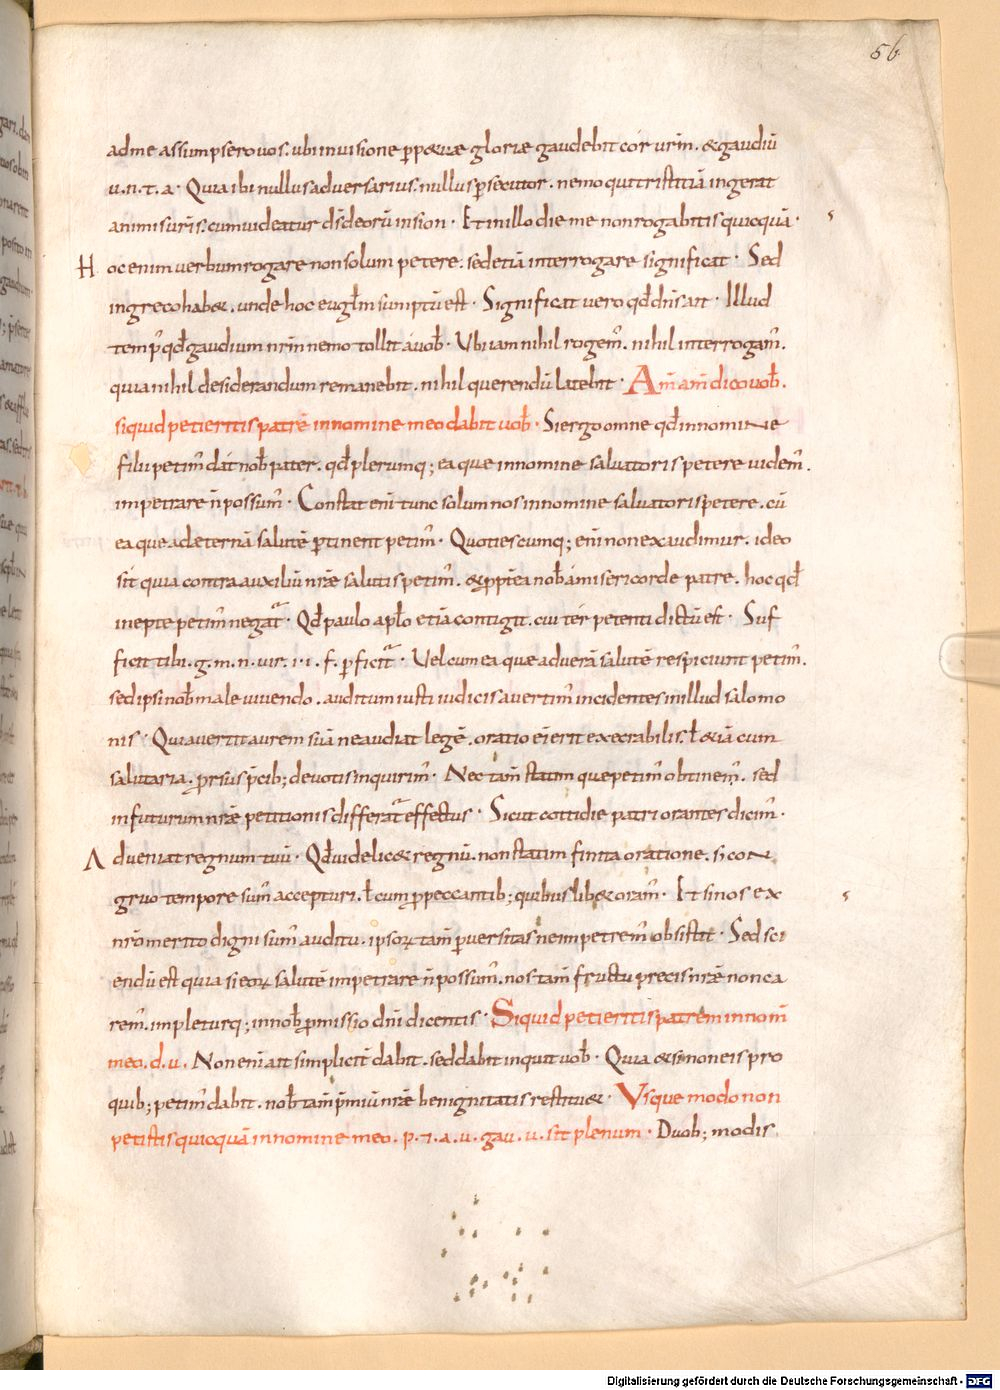 56
adme assumpsero uos. ubi in uisione ꝑpetuæ gloriæ gaudebit cór urm̄. & gaudiū
u. n. t. a. Quia ibi nullus aduersarius. nullus ꝑsecutor. nemo qui tristitiā ingerat
animis uris. cum uideatur d̄s deorū in sion. Et in illo die me non rogabitis quicquā.
Hoc enim uerbum rogare non solum petere. sed etiā interrogare significat. Sed
in greco habet. unde hoc eugłm sumptū est. Significat uero qđ dn̄s ait. Illud
temp̄ qđ gaudium nrm̄ nemo tollit a uob̄. Ubi iam nihil rogem̄. nihil interrogam̄.
quia nihil desiderandum remanebit. nihil querendū latebit. Am̄ am̄ dico uob̄.
siquid petieritis patrē in nomine meo dabit uob̄. Si ergo omne qđ in nomine
filii petim̄ dat nob̄ pater. qđ plerumq; ea que in nomine saluatoris petere uidem̄.
impetrare n̄ possum̄. Constat eni tunc solum nos in nomine saluatoris petere. cū
ea que ad æternā salutē ꝑtinent petim̄. Quotiescumq; eni non exaudimur. ideo
sit quia contra auxiliū nræ salutis petim̄. & ꝓpterea nob̄ a misericorde patre. hoc qđ
inepte petim̄ negat̄. Qđ paulo apło etiā contigit. cui tér petenti dictū est. Suf
ficit tibi. g. m. n. uir. i. i. f. ꝑficit̄. Uel cum ea quæ ad uerā salutē respiciunt petim̄.
sed ipsi nob̄ male uiuendo. auditum iusti iudicis auertim̄ incidentes in illud salomo
nis. Qui auertit aurem suā ne audiat legē. oratio ei erit execrabilis. ł & iā cum
salutaria. ꝓrsus p̄cib; deuotis inquirim̄. Nec tam̄ statim que petim̄ obtinem̄. sed
in futurum nræ petitionis differat̄ effectus. Sicut cottidie patri orantes dicim̄.
Adueniat regnum tuū. Qđ uidelicet regnū. non statim finita oratione. s; con
gruo tempore sum̄ accepturi. ł cum ꝓ peccantib; quibuslibet oram̄. Et si nos ex
nr̄o merito digni sum̄ auditu. ipsoꝝ tam̄ ꝑuersitas ne impetrem̄ obsistit. Sed sci
endū est quia si eoꝝ salutē impetrare n̄ possum̄. nos tam̄ fructu precis nræ non ca
rem̄. impleturq; in nob̄ ꝓmissio dn̄i dicentis. Siquid petieritis patrem in nom̄
meo. d. u. Non eni ait simplicit̄ dabit. sed dabit inquit uob̄. Quia & si non eis pro
quib; petim̄ dabit. nob̄ tam̄ p̄miū nræ benignitatis restituet. Usque modo non
petistis quicquā in nomine meo. p. & a. u. gau. u. sit plenum. Duob; modis
Digitalisierung gefördert durch die Deutsche Forschungsgemeinschaft - DFG